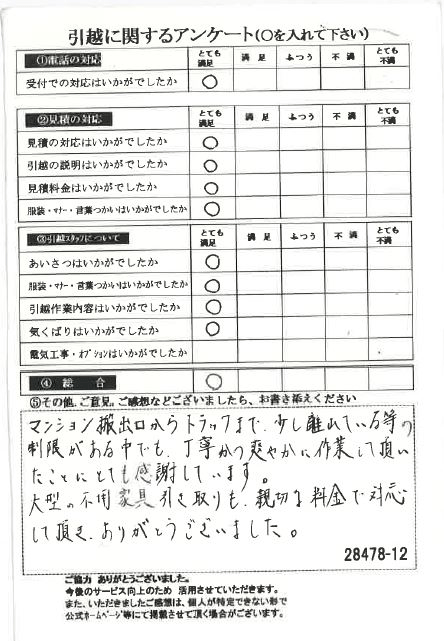 引越に関するアンケート(○を入れて下さい)
①電話の対応 とても満足 満足 ふつう 不満 とても不満
受付での対応はいかがでしたか ○
②見積の対応 とても満足 満足 ふつう 不満 とても不満
見積の対応はいかがでしたか ○
引越の説明はいかがでしたか ○
見積料金はいかがでしたか ○
服装・マナー・言葉つかいはいかがでしたか ○
③引越スタッフについて とても満足 満足 ふつう 不満 とても不満
あいさつはいかがでしたか ○
服装・マナー・言葉つかいはいかがでしたか ○
引越作業内容はいかがでしたか ○
気くばりはいかがでしたか ○
電気工事・オプションはいかがでしたか
④ 総合 ○
⑤その他、ご意見、ご感想などございましたら、お書き添えください
マンション搬出口からトラックまで、少し離れている等の
制限がある中でも、丁寧かつ爽やかに作業して頂い
たことにとても感謝しています。
大型の不用家具引き取りも、親切な料金で対応
して頂き、ありがとうございました。
28478-12
ご協力 ありがとうございました。
今後のサービス向上のため 活用させていただきます。
また、いただきましたご感想は、個人が特定できない形で
公式ホームページ等にて掲載させて頂く場合がございます。